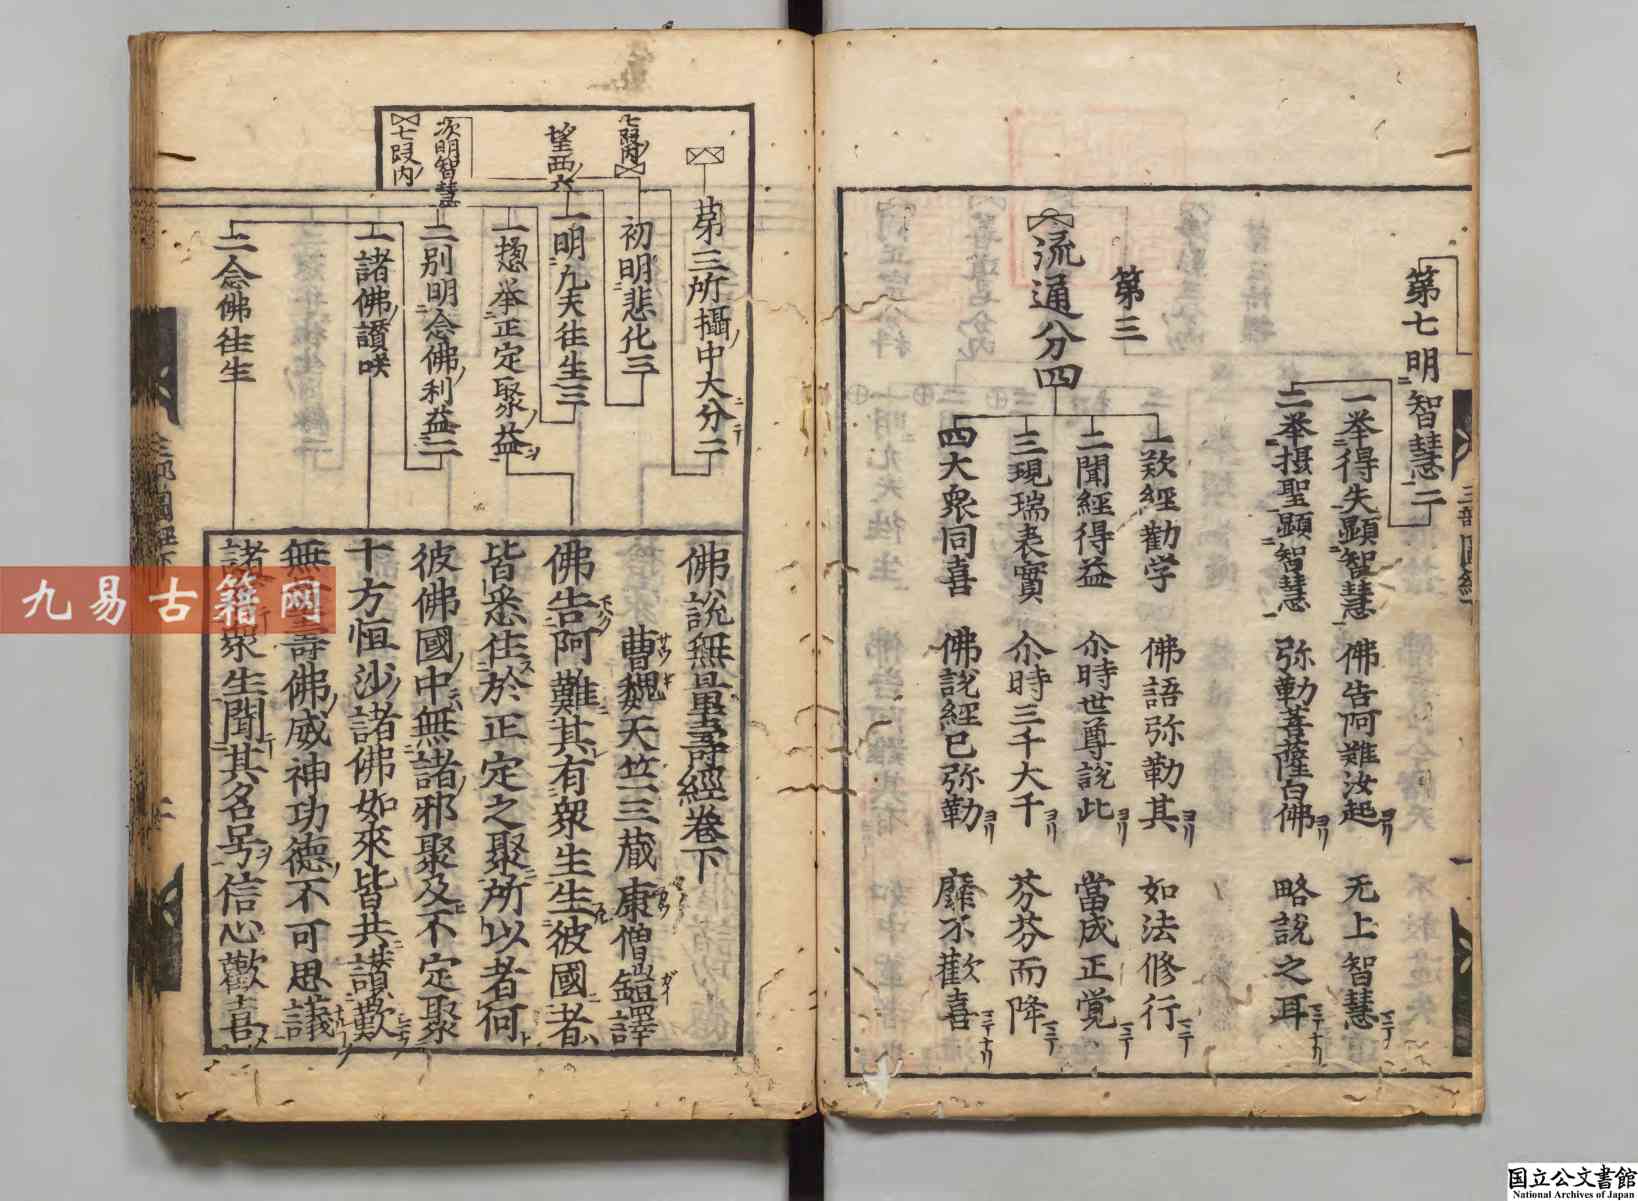 第七明智慧二
一举得失顕智慧 佛告阿難汝起ヨリ 无上智慧マテ
二举摂聖顕智慧 弥勒菩薩白佛ヨリ 略説之耳マテナリ
第三
流通分四
一歎経勧学 佛語弥勒其ヨリ 如法修行マテ
二聞經得益 尒時世尊説此ヨリ 當成正覚マテ
三現瑞表實 尒時三千大千ヨリ 芬芬而降マテ
四大衆同喜 佛説經已弥勒ヨリ 靡不歡喜マテナリ
第三所攝中大分二
七段内
初明悲化三
望西
一明凡夫往生三
一揔举正定聚益
次明智慧
二別明念佛利益二
七段内
一諸佛讃咲
二念佛往生
佛説無量壽經巻下
曹魏天竺三蔵康僧鎧譯
佛告阿難其有衆生生彼國者
皆悉住於正定之聚所以者何
彼佛國中無諸邪聚及不定聚
十方恒沙諸佛如來皆共讃歎
無量壽佛威神功德不可思議
諸衆生聞其名号信心歡喜
三部
九易古籍网
国立公文書館
National Archives of Japan